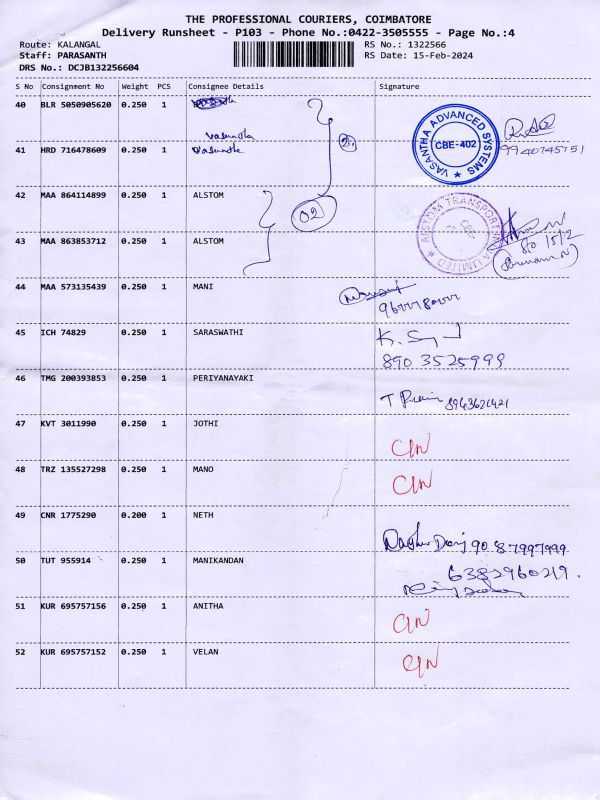 THE PROFESSIONAL COURIERS, COIMBATORE
Delivery Runsheet - P103 - Phone No.:0422-3505555 - Page No.:4
Route: KALANGAL RS No.: 1322566
Staff: PARASANTH RS Date: 15-Feb-2024
DRS No.: DCJB132256604
S No Consignment No Weight PCS Consignee Details Signature
40 BLR 5050905620 0.250 1
Vasundha
VASANTHA ADVANCED SYSTEMS ★ CBE-402
41 HRD 716478609 0.250 1 Vasundha 9940745151
42 MAA 864114899 0.250 1 ALSTOM
02
ALSTOM TRANSPORT INDIA LIMITED ★
43 MAA 863853712 0.250 1 ALSTOM
15/2
44 MAA 573135439 0.250 1 MANI
45 ICH 74829 0.250 1 SARASWATHI
890 3525999
46 TMG 200393853 0.250 1 PERIYANAYAKI
8943621421
47 KVT 3011990 0.250 1 JOTHI
C/N
48 TRZ 135527298 0.250 1 MANO C/N
49 CNR 1775290 0.200 1 NETH
90 87997999
50 TUT 955914 0.250 1 MANIKANDAN
6382960219.
51 KUR 695757156 0.250 1 ANITHA
C/N
52 KUR 695757152 0.250 1 VELAN
C/N